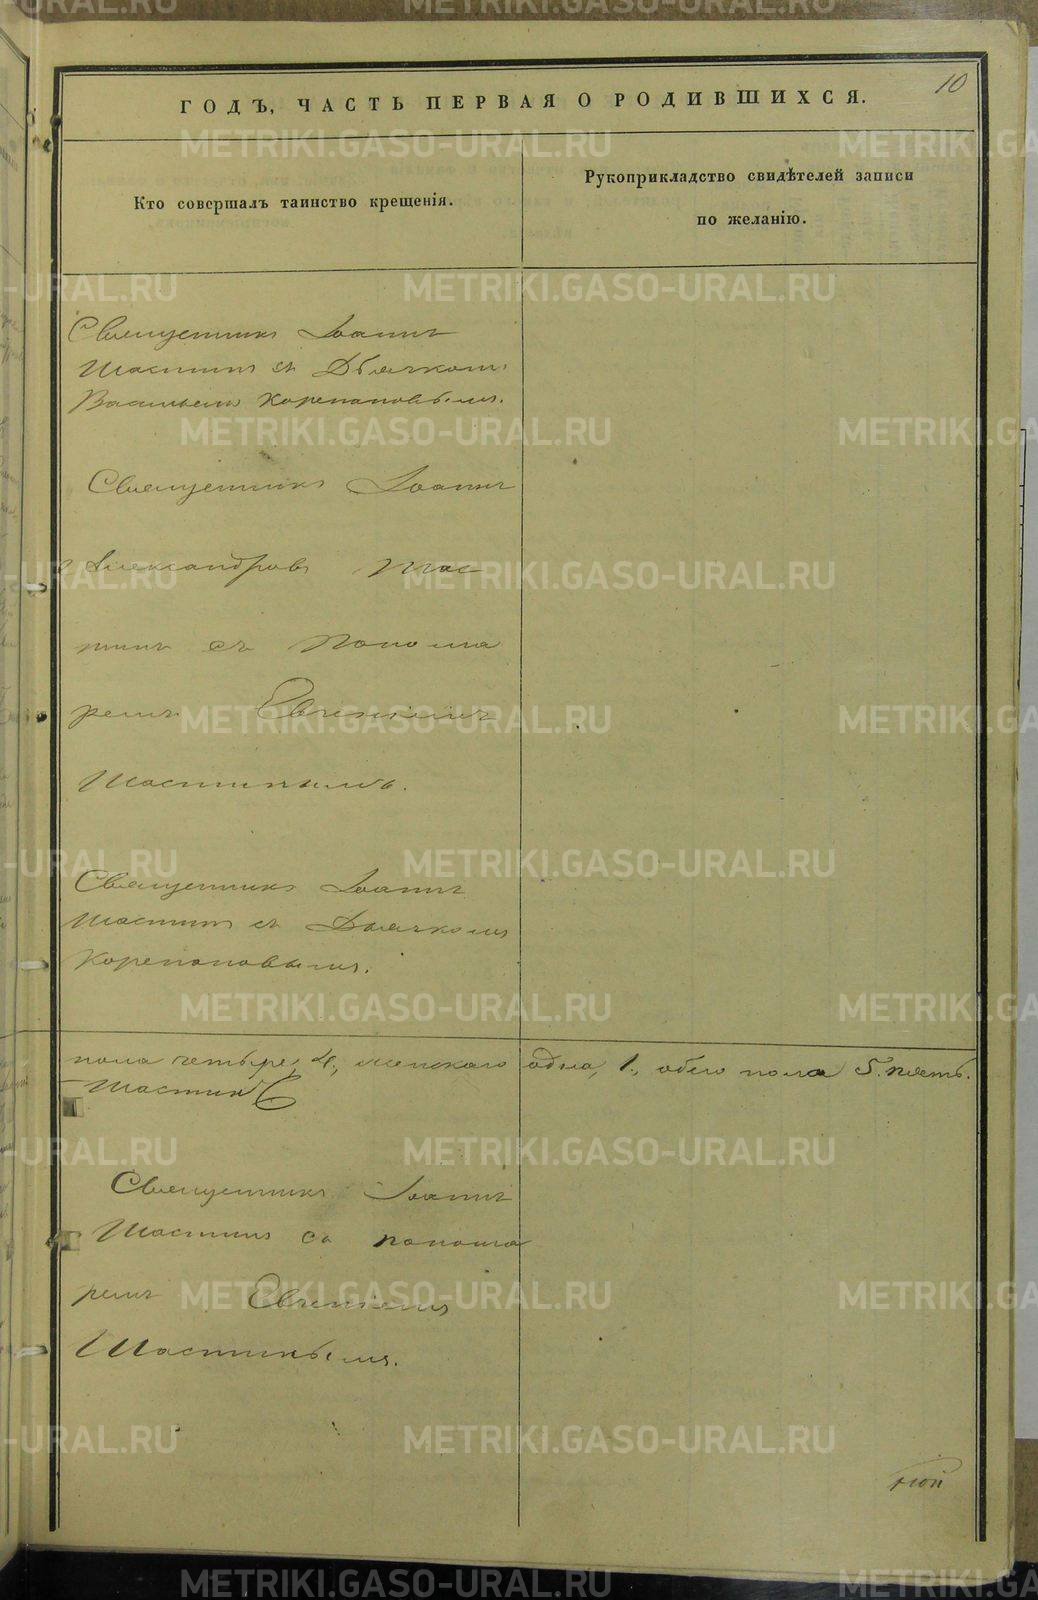 METRIKI.GASO-URAL.RU
10
ГОДЪ, ЧАСТЬ ПЕРВАЯ О РОДИВШИХСЯ.
Кто совершалъ таинство крещенія.
Рукоприкладство свидѣтелей записи
по желанію.
Священникъ Іоаннъ
Шастинъ съ Дьячкомъ
Васильемъ Корепановымъ.
Священникъ Іоаннъ
Александровъ Шас
тинъ съ Понома
ремъ Евгеніемъ
Шастинымъ.
Священникъ Іоаннъ
Шастинъ съ Дьячкомъ
Корепановымъ.
пола четыре, 4, женскаго одна, 1, обего пола 5. пять.
Шастинъ
Священникъ Іоаннъ
Шастинъ съ понома
ремъ Евгеніемъ
Шастинымъ.